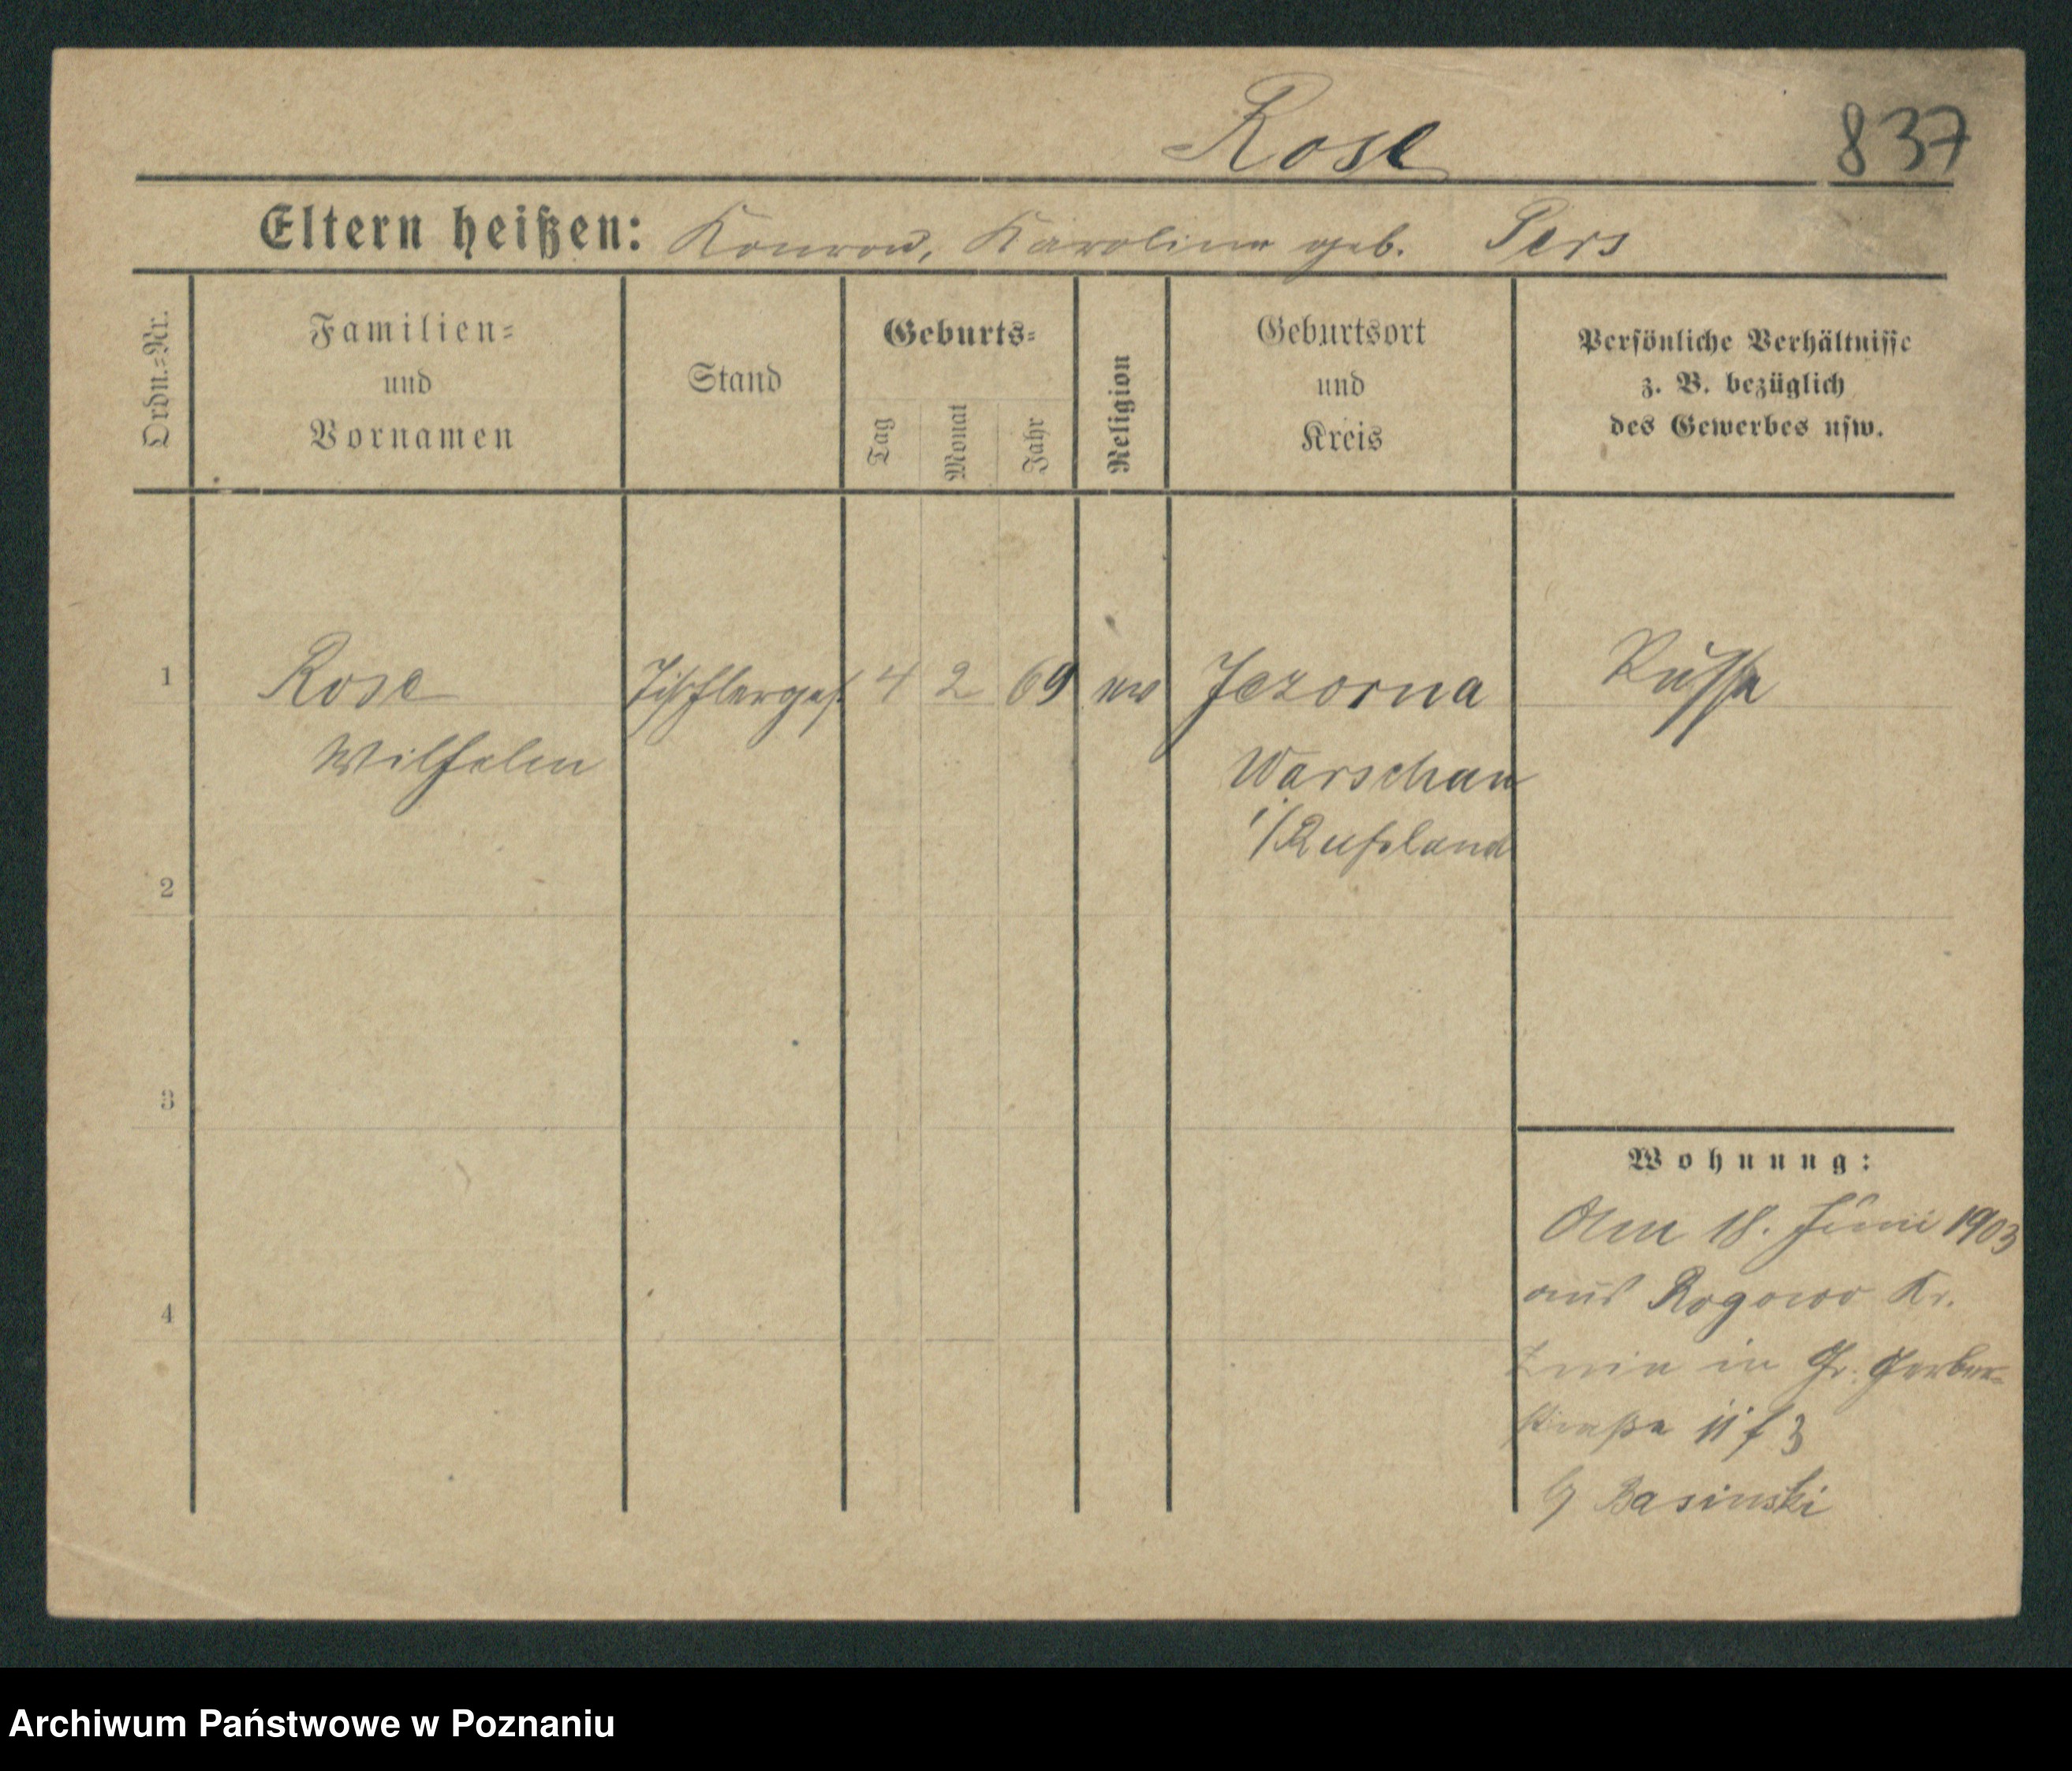 Rose 837
Eltern heißen: Konrad, Karoline geb. Pers
Ordn.=Nr.
Familien=
und
Vornamen
Stand
Geburts=
Tag
Monat
Jahr
Religion
Geburtsort
und
Kreis
Persönliche Verhältnisse
z. B. bezüglich
des Gewerbes usw.
1 Rose Tischlerges. 4 2 69 ev Jezorna Russe
Wilhelm Warschau
i/Rußland
2
3
4
Wohnung:
Am 18. Juni 1903
aus Rogowo Kr.
Znin in Gr. Gerber-
straße 11 f 3
b/ Basinski
Archiwum Państwowe w Poznaniu